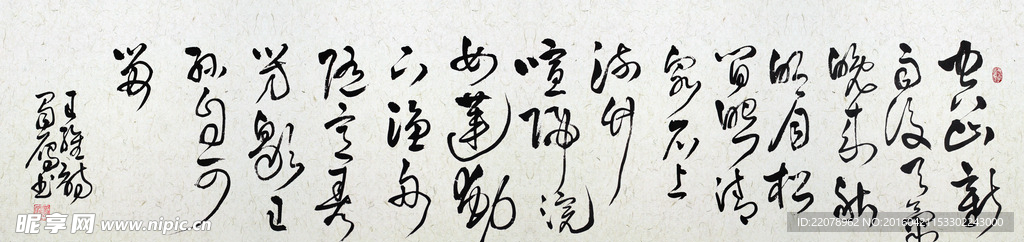 空山新
雨後天氣
晚來秋
明月松
間照清
泉石上
流竹
喧歸浣
女蓮動
下漁舟
隨意春
芳歇王
孫自可
留
王維詩
昵享网 www.nipic.cn
ID:22078962 NO:20160421153302243000